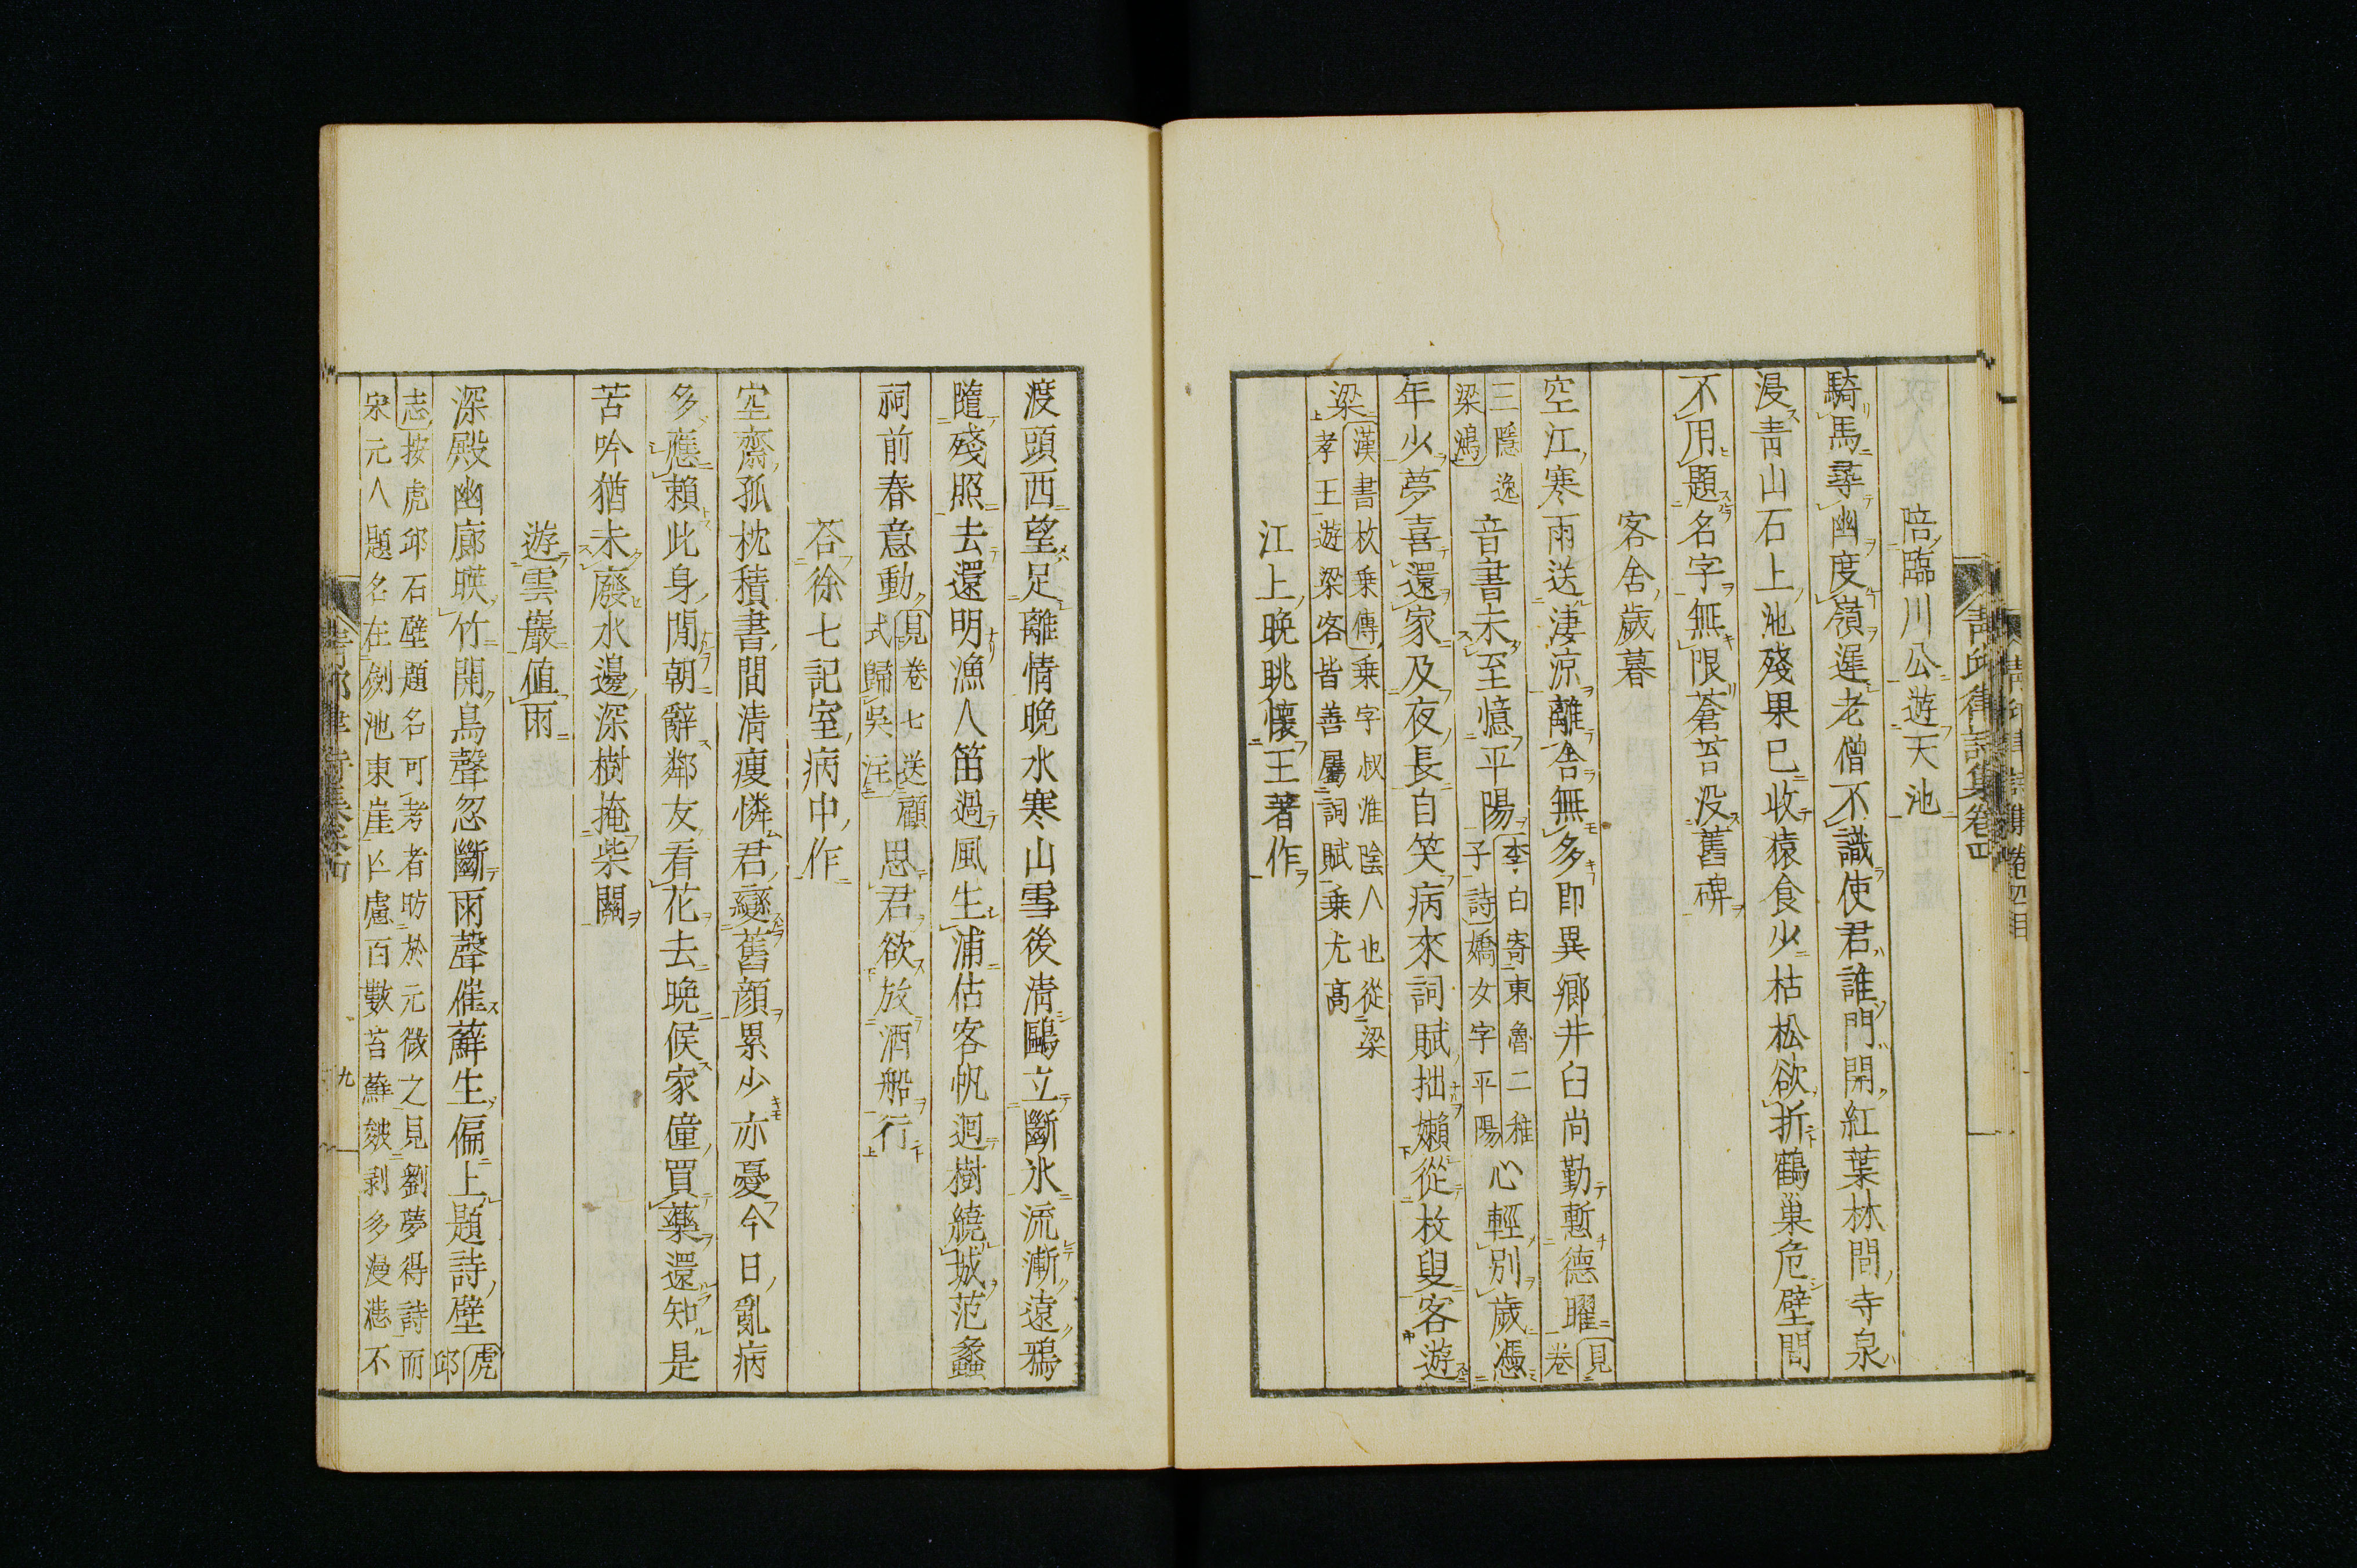 陪臨川公遊天池
騎馬尋幽度嶺遲老僧不識使君誰門開紅葉林間寺泉
浸靑山石上池殘果已收猿食少枯松欲折鶴巢危壁間
不用題名字無限蒼苔沒舊碑
客舍歲暮
空江寒雨送淒涼離舍無多即異鄉井臼尚勤慙德曜見卷
三隱逸梁鴻音書未至憶平陽李白寄東魯二稚子詩嬌女字平陽心輕別歲憑
年少夢喜還家及夜長自笑病來詞賦拙嬾從枚叟客遊
梁漢書枚乘傳乘字叔淮陰人也從梁孝王遊梁客皆善屬詞賦乘尤高
江上晚眺懷王著作
渡頭西望足離情晚水寒山雪後淸鷗立斷氷流漸遠鴉
隨殘照去還明漁人笛過風生浦估客帆迴樹繞城范蠡
祠前春意動見卷七送顧式歸吳注思君欲放酒船行
答徐七記室病中作
空齋孤枕積書間淸瘦憐君變舊顏累少亦憂今日亂病
多應賴此身閒朝辭鄰友看花去晚候家僮買藥還知是
苦吟猶未廢水邊深樹掩柴關
遊雲巖值雨
深殿幽廊暎竹開鳥聲忽斷雨聲催蘚生偏上題詩壁虎邱
志按虎邱石壁題名可考者昉於元微之見劉夢得詩而
宋元人題名在劍池東崖亡慮百數苔蘚皴剥多漫漶不
靑邱律詩集卷四
九